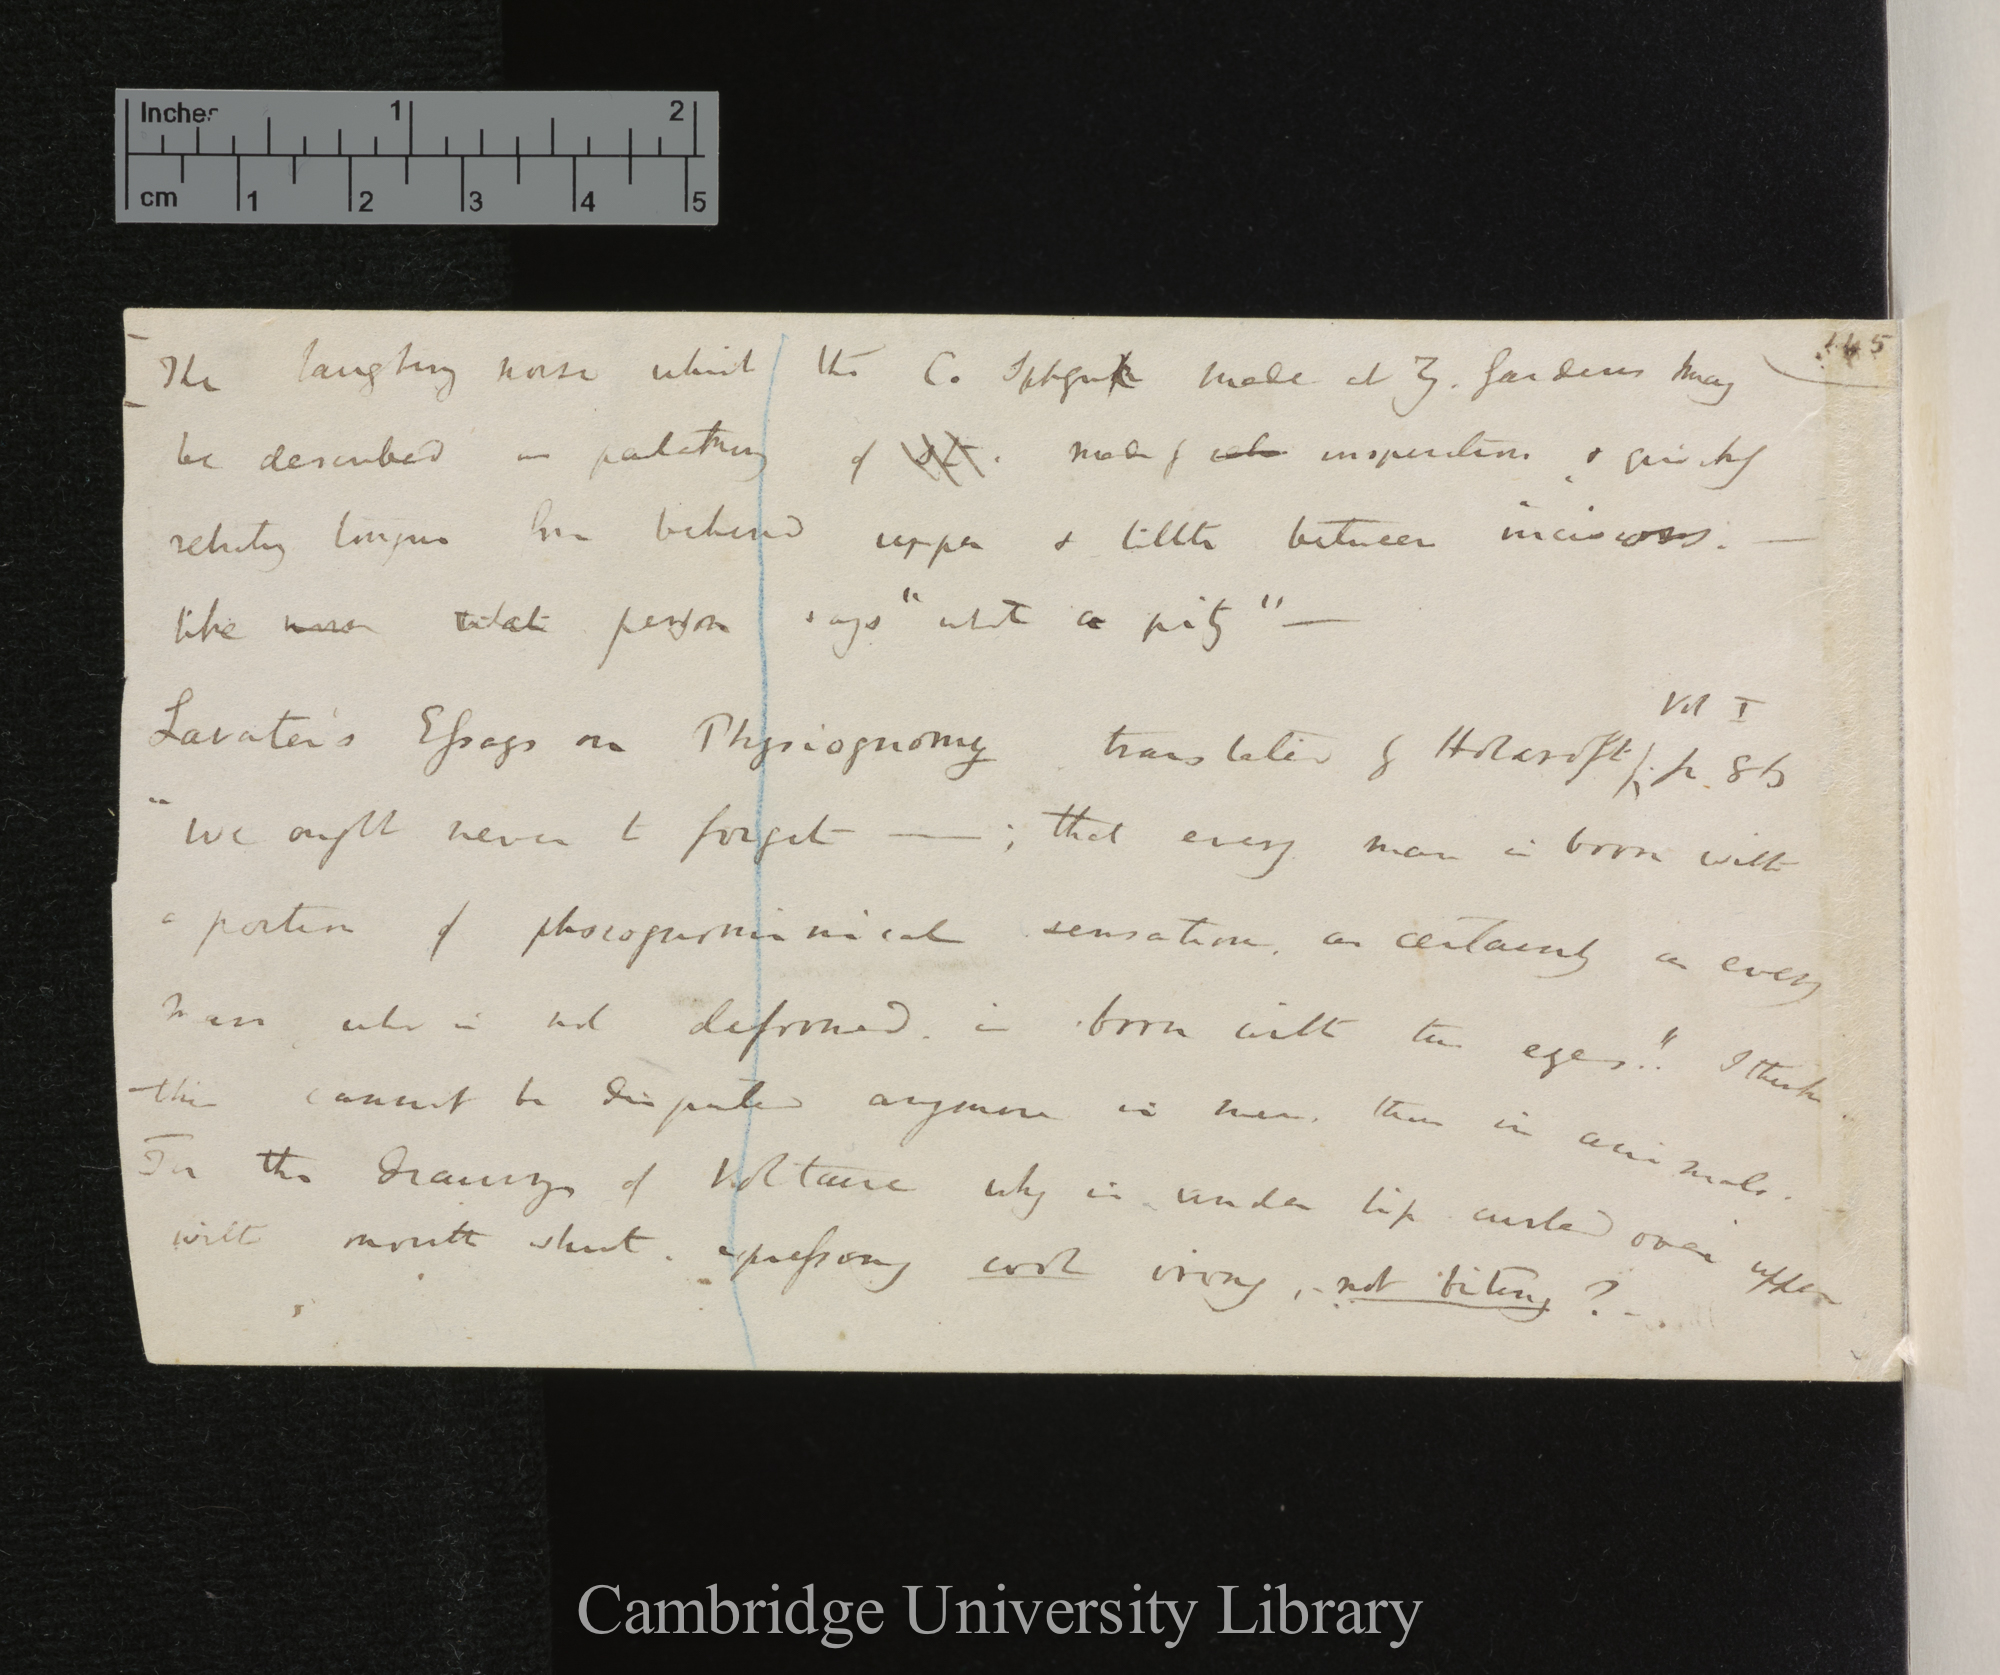 Inches 1 2
cm 1 2 3 4 5
145
The laughing noise which the C. Sphynx made at Z. Gardens may
be described as of made by inspiration & quickly
tongue from behind upper & little between incisors. —
like person says "what a pity" —
Vol I
Lavater's Essays on Physiognomy translated by Holcroft, p. 86
"We ought never to forget —— ; that every man is born with
a portion of phisiognomical sensation, as certainly as every
man who is not deformed. is born with two eyes." I think
this cannot be disputed anymore in men. than in animals.
In the drawings of Voltaire why is under lip curled over upper
with mouth shut. expressing cool irony, - not biting? -
Cambridge University Library